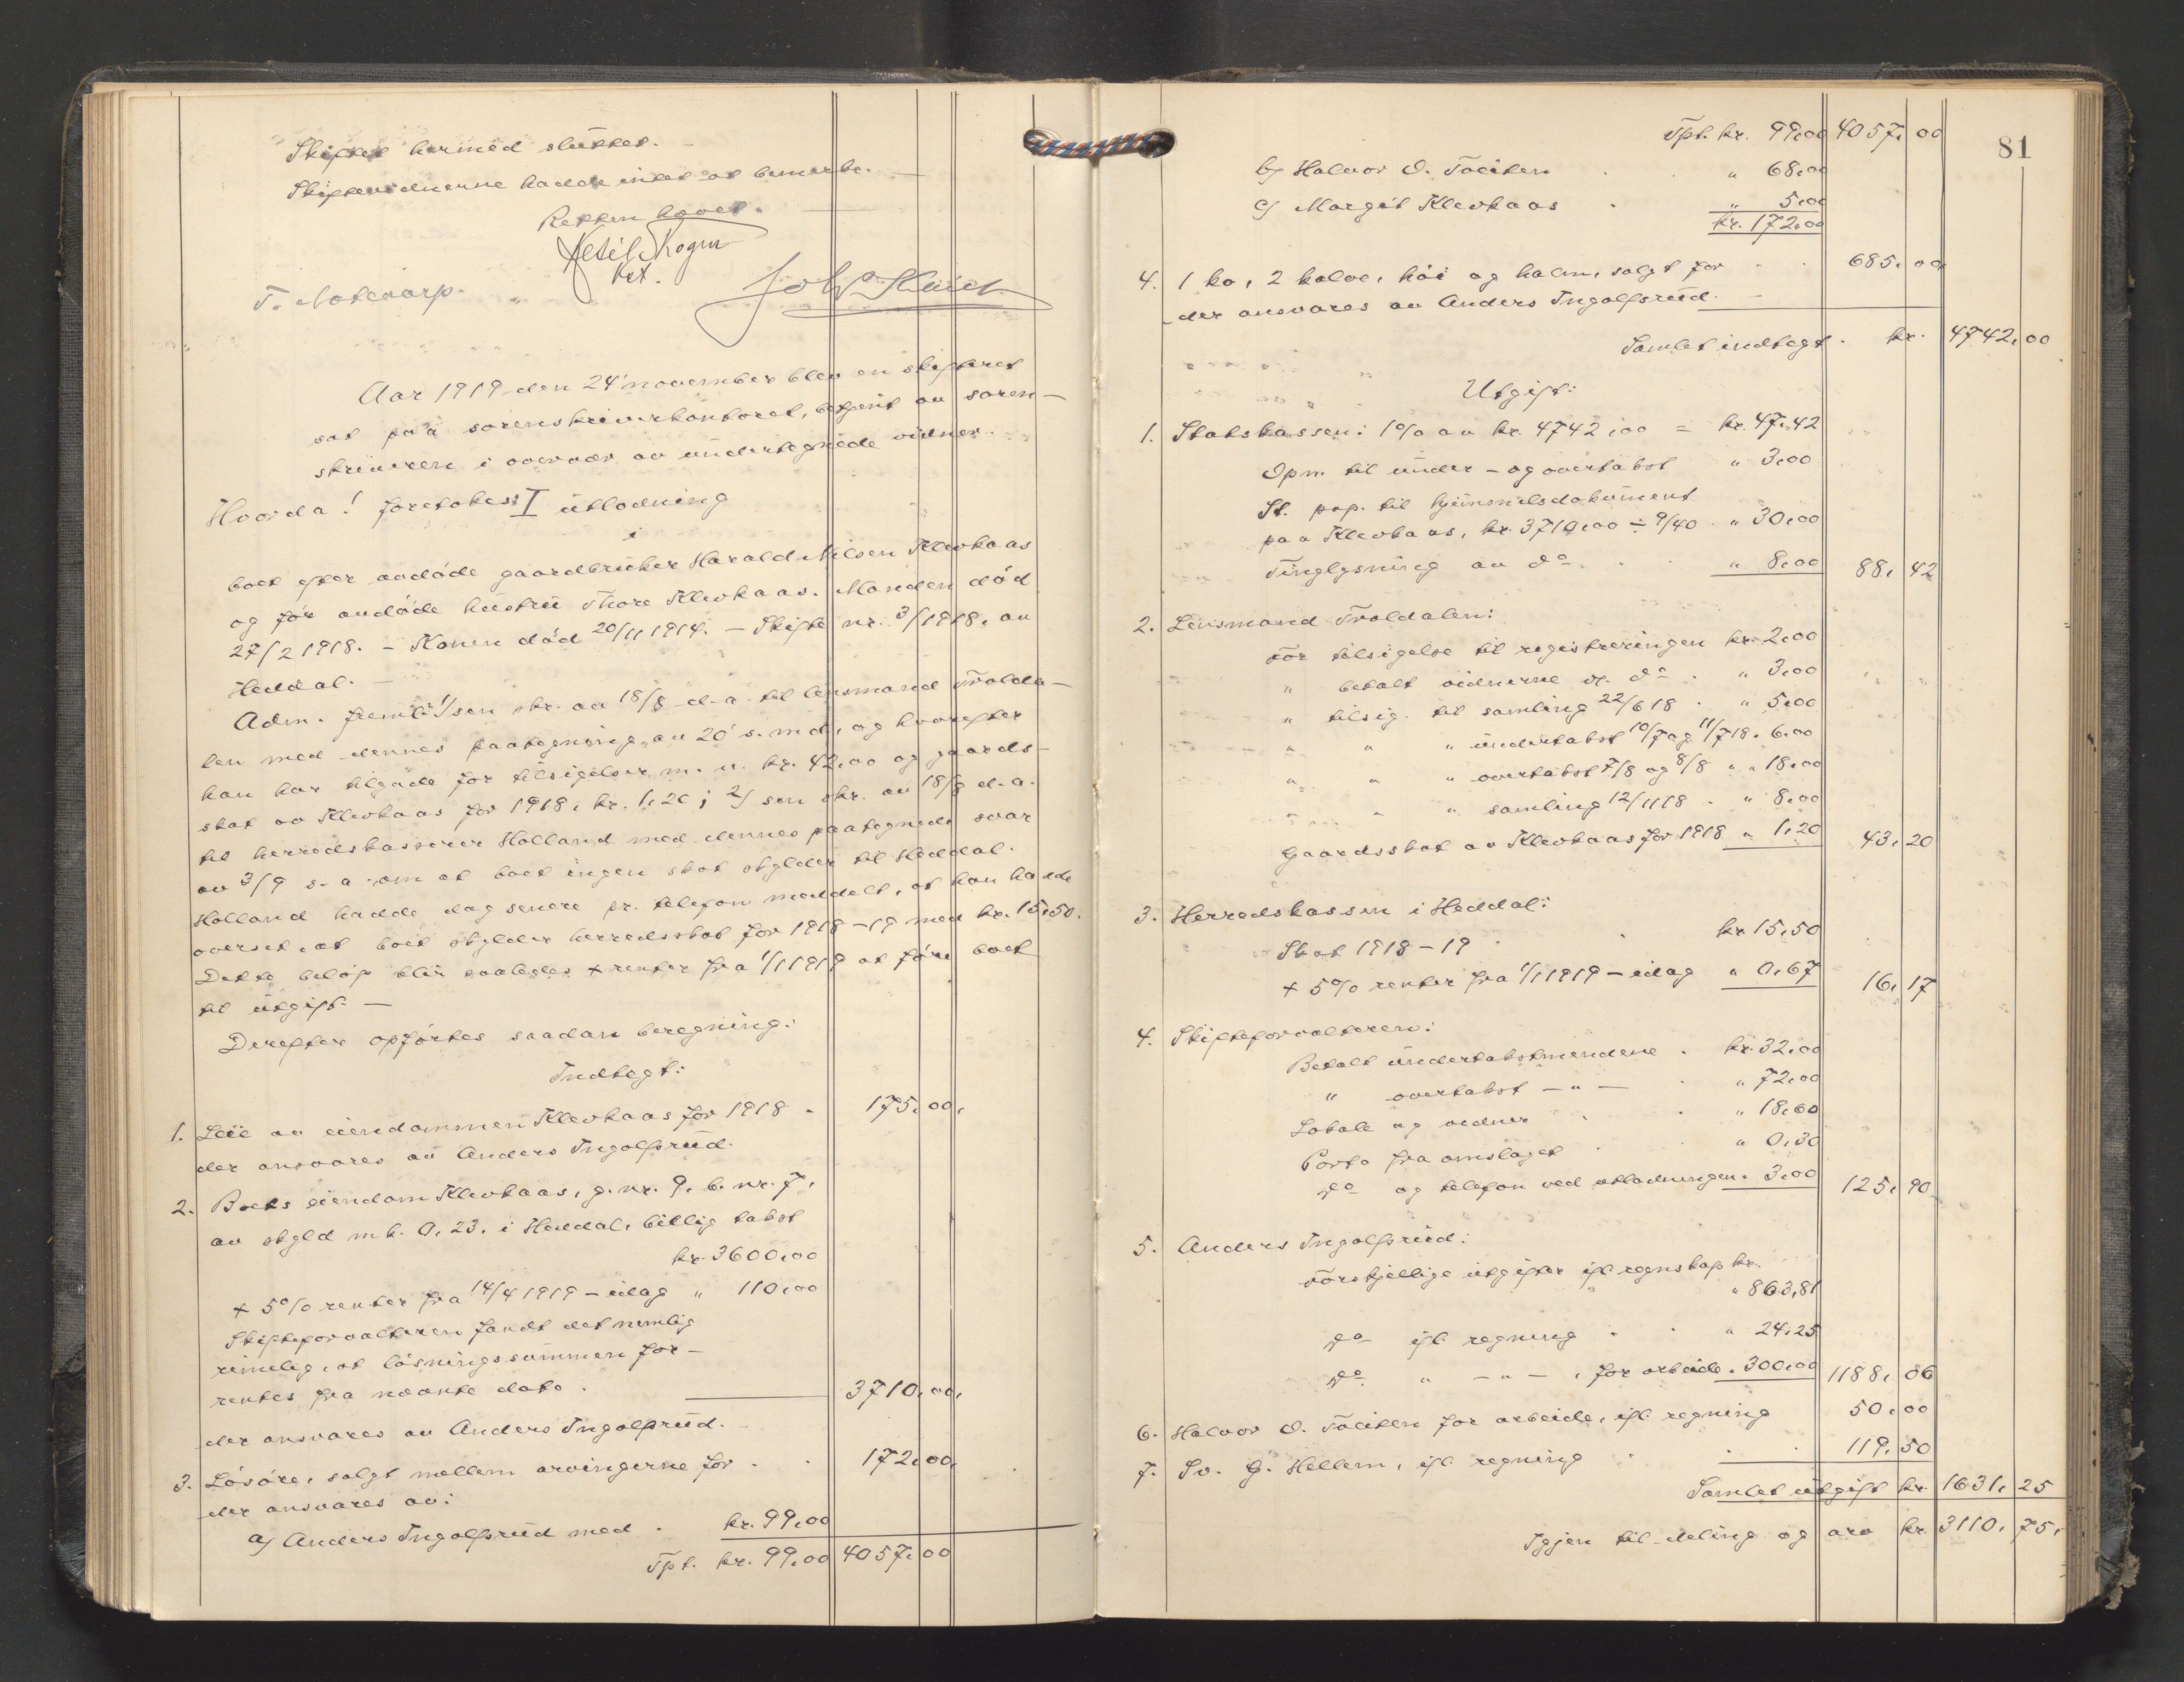 Skiftet hermed sluttet. —
Skiftevidnerne hadde intet at bemerke. —
Retten hævet.
Ketil Skogen
Kst.
T. Notevarp.
Aar 1919 den 24 november blev en skifteret
sat paa sorenskriverkontoret, betjent av soren-
skriveren i overvær av undertegnede vidner.
Hvorda! foretokes: I utlodning
i
boet efter avdøde gaardbruker Harald Nilsen Klevkaas
og før avdøde hustru Thore Klevkaas. Manden død
27/2 1918. – Konen død 20/11 1914. – Skifte nr. 3/1918, av
Heddal. —
Adm. fremla 1/ sin skr. av 18/8 d.a. til lensmand Trolda-
len med dennes paategning av 20 s. md, og hvorefter
han har tilgode for tilsigelser m. v. kr. 42,00 og gaards-
skat av Klevkaas for 1918, kr. 1,20; 2/ sin skr. av 18/8 d.a.
til herredskasserer Holland med dennes paategnede svar
av 3/9 s.a. om at boet ingen skat skylder til Heddal.
Holland hadde dog senere pr. telefon meddelt, at han hadde
overset, at boet skylder herredsskat for 1918–19 med kr. 15,50.
Dette beløp blir saaledes + renter fra 1/1 1919 at føre boet
til utgift. —
Derefter opførtes saadan beregning:
Indtægt:
1. Leie av eiendommen Klevkaas for 1918 . 175,00,
der ansvares av Anders Ingolfsrud.
2. Boets eiendom Klevkaas, g.nr. 9, b.nr. 7,
av skyld mk. 0,23, i Heddal, billig takst
kr. 3600,00
+ 5% renter fra 14/4 1919 – idag " 110,00
Skifteforvalteren fandt det nemlig
rimelig, at løsningssummen for-
rentes fra nævnte dato . 3710,00,
der ansvares av Anders Ingolfsrud.
3. Løsøre, solgt mellem arvingerne for . . 172,00,
der ansvares av:
a/ Anders Ingolfsrud med . kr. 99,00
Tpt. kr. 99,00 4057,00
81
Tpt. kr. 99,00 4057,00
b/ Halvor O. Tveiten . . " 68,00
c/ Margit Klevkaas . " 5,00
kr. 172,00
4. 1 ko, 2 kalve, høi og halm, solgt for . . 685,00,
der ansvares av Anders Ingolfsrud.
Samlet indtægt . kr. 4742,00
Utgift:
1. Statskassen: 1% av kr. 4742,00 = kr. 47,42
Opn. til under- og overtakst " 3,00
St. pap. til hjemmelsdokument
paa Klevkaas, kr. 3710,00 ÷ 9/40 . " 30,00
Tinglysning av do . . " 8,00 88,42
2. Lensmand Troldalen:
For tilsigelse til registreringen kr. 2,00
" betalt vidnerne v. do . " 3,00
" tilsig. til samling 22/6 18 . " 5,00
" " " undertakst 10/7 og 11/7 18 " 6,00
" " " overtakst 7/8 og 8/8 " " 18,00
" " " samling 12/11 18 . " 8,00
Gaardsskat av Klevkaas for 1918 " 1,20 43,20
3. Herredskassen i Heddal:
Skat 1918–19 . . kr. 15,50
+ 5% renter fra 1/1 1919 – idag " 0,67 16,17
4. Skifteforvalteren:
Betalt undertakstmændene . kr. 32,00
" overtakst – " – . " 72,00
Lokale og vidner . . " 18,60
Porto fra omslaget . " 0,30
do og telefon ved utlodningen " 3,00 125,90
5. Anders Ingolfsrud:
Forskjellige utgifter ifl. regnskap kr.
" 863,81
do ifl. regning . . " 24,25
do " – " – , for arbeide " 300,00 1188,06
6. Halvor O. Tveiten for arbeide, ifl. regning 50,00
7. Sv. G. Hellem, ifl. regning . . . 119,50
Samlet utgift kr. 1631,25
Igjen til deling og arv kr. 3110,75,